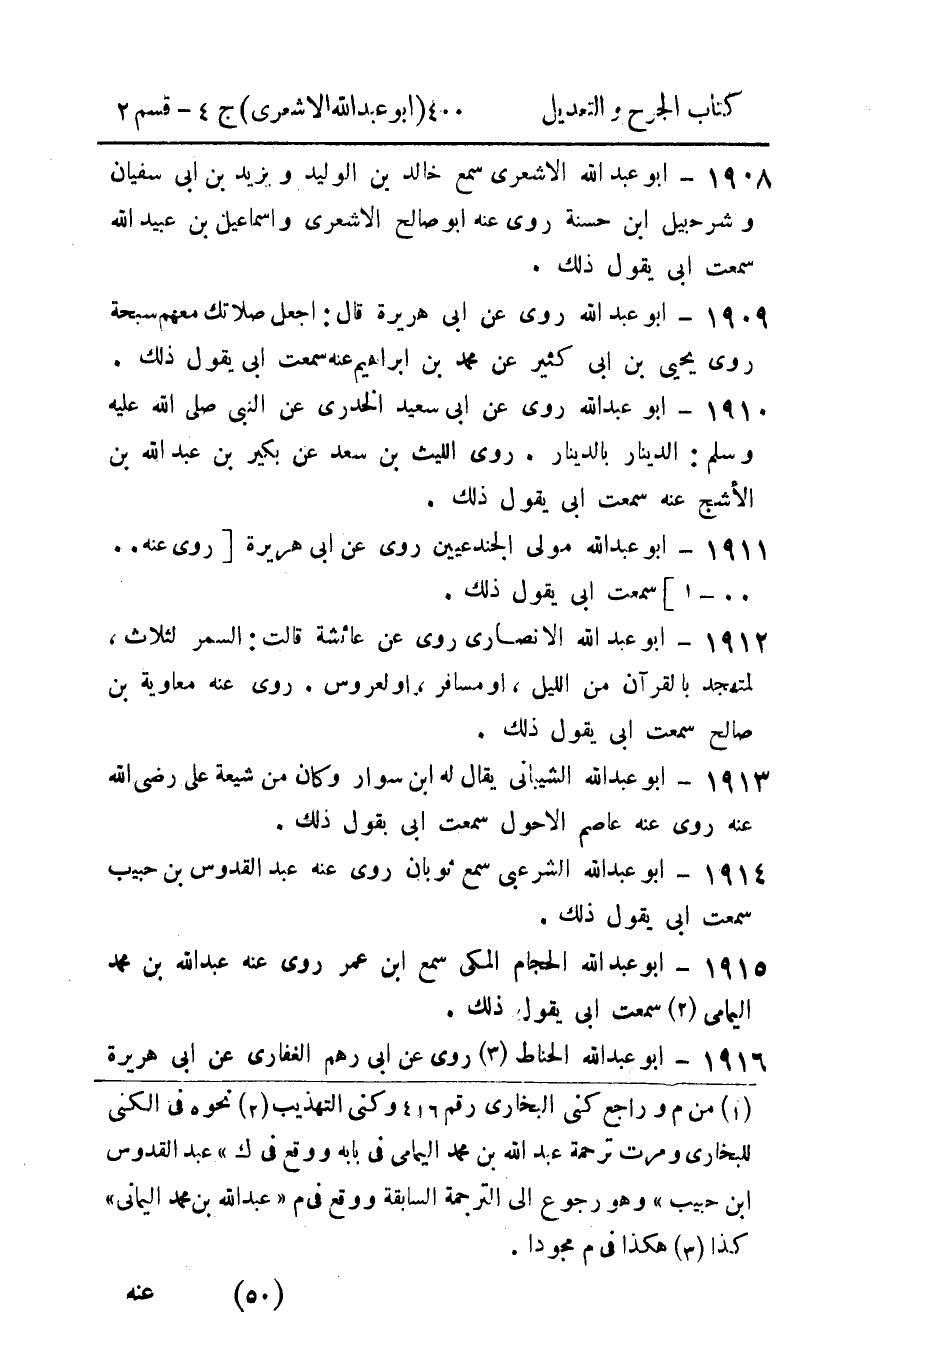 كتاب الجرح والتعديل ٤٠٠ (ابو عبد الله الاشعرى) ج ٤ – قسم ٢
١٩٠٨ – ابو عبد الله الاشعرى سمع خالد بن الوليد ويزيد بن ابى سفيان
وشرحبيل ابن حسنة روى عنه ابو صالح الاشعرى واسماعيل بن عبيد الله
سمعت ابى يقول ذلك .
١٩٠٩ – ابو عبد الله روى عن ابى هريرة قال : اجعل صلاتك معهم سبحة
روى يحيى بن ابى كثير عن محمد بن ابراهيم عنه سمعت ابى يقول ذلك .
١٩١٠ – ابو عبدالله روى عن ابى سعيد الخدرى عن النبى صلى الله عليه
وسلم : الدينار بالدينار . روى الليث بن سعد عن بكير بن عبد الله بن
الأشج عنه سمعت ابى يقول ذلك .
١٩١١ – ابو عبدالله مولى الجندعيين روى عن ابى هريرة [ روى عنه . .
. . – ١ ] سمعت ابى يقول ذلك .
١٩١٢ – ابو عبد الله الانصارى روى عن عائشة قالت : السمر لثلاث ،
لمتهجد بالقرآن من الليل ، او مسافر ، او لعروس . روى عنه معاوية بن
صالح سمعت ابى يقول ذلك .
١٩١٣ – ابو عبدالله الشيبانى يقال له ابن سوار وكان من شيعة على رضى الله
عنه روى عنه عاصم الاحول سمعت ابى يقول ذلك .
١٩١٤ – ابو عبدالله الشرعبى سمع ثوبان روى عنه عبد القدوس بن حبيب
سمعت ابى يقول ذلك .
١٩١٥ – ابو عبد الله الحجام المكى سمع ابن عمر روى عنه عبدالله بن محمد
اليمامى (٢) سمعت ابى يقول ذلك .
١٩١٦ – ابو عبدالله الحناط (٣) روى عن ابى رهم الغفارى عن ابى هريرة
(١) من م و راجع كنى البخارى رقم ٤١٦ وكنى التهذيب (٢) نحوه فى الكنى
للبخارى ومرت ترجمة عبد الله بن محمد اليمامى فى بابه ووقع فى ك » عبد القدوس
ابن حبيب » وهو رجوع الى الترجمة السابقة ووقع فى م « عبدالله بن محمد اليمانى»
كذا (٣) هكذا فى م مجودا .
(٥٠) عنه